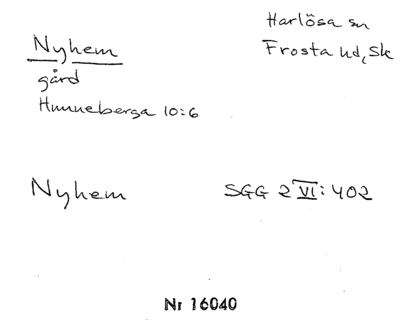 Nyhem
Harlösa sn
Frosta hd, Sk
gård
Hunneberga 10:6
Nyhem
SGG 2 VI: 402
Nr 16040